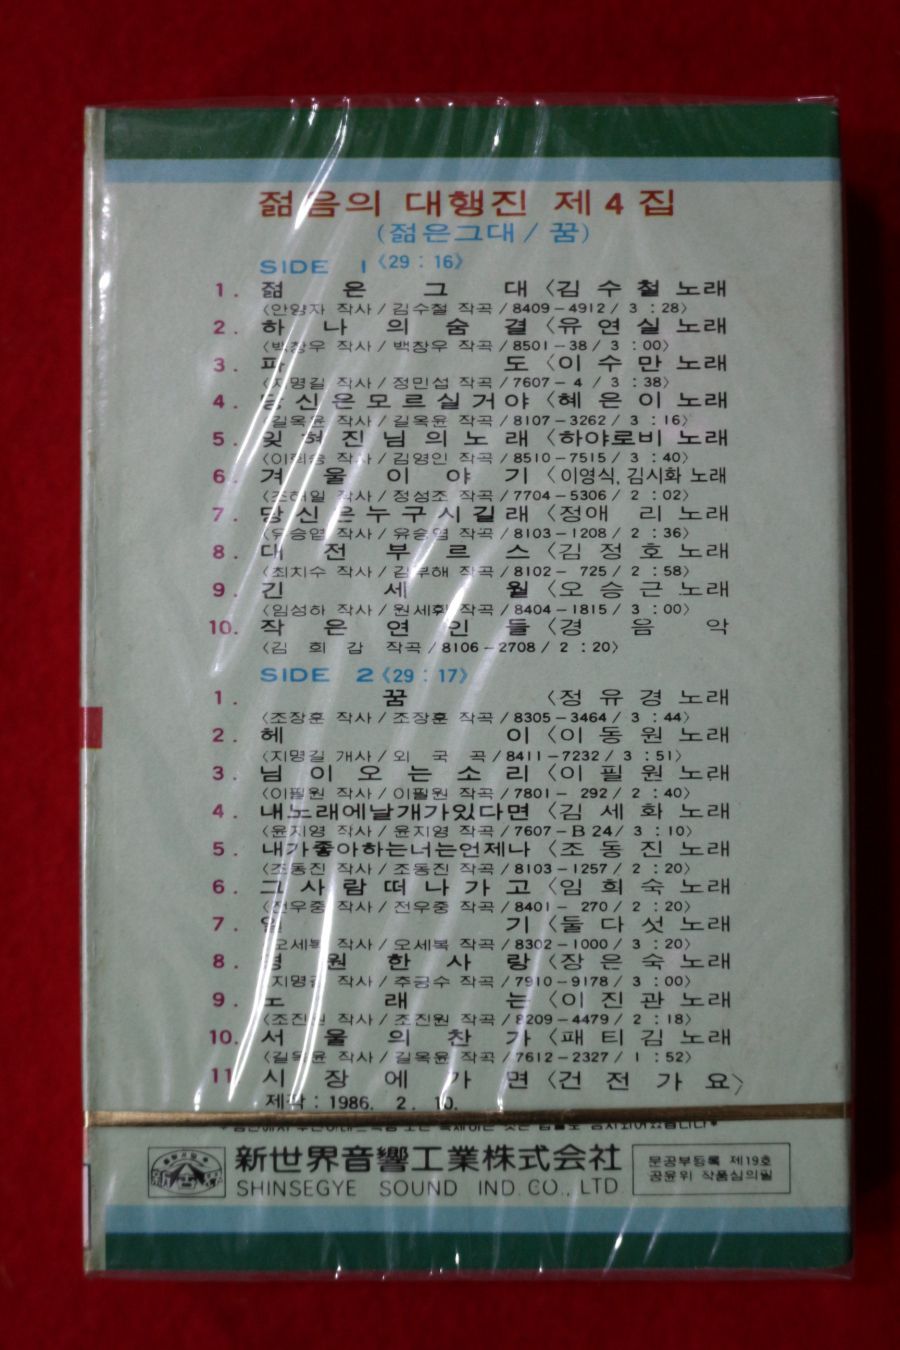 젊음의 대행진 제4집
(젊은그대/꿈)
SIDE 1 《29:16》
1. 젊은그대 〈김수철 노래
〈안양자 작사/김수철 작곡/8409-4912/3:28〉
2. 하나의 숨결 〈유연실 노래
〈백창우 작사/백창우 작곡/8501-38/3:00〉
3. 파도 〈이수만 노래
〈지명길 작사/정민섭 작곡/7607-4/3:38〉
4. 당신은모르실거야 〈혜은이 노래
〈길옥윤 작사/길옥윤 작곡/8107-3262/3:16〉
5. 잊혀진님의노래 〈하야로비 노래
작사/김영인 작곡/8510-7515/3:40〉
6. 겨울이야기 〈이영식, 김시화 노래
〈조해일 작사/정성조 작곡/7704-5306/2:02〉
7. 당신은누구시길래 〈정애리 노래
〈유승엽 작사/유승엽 작곡/8103-1208/2:36〉
8. 대전부르스 〈김정호 노래
〈최치수 작사/김부해 작곡/8102-725/2:58〉
9. 긴세월 〈오승근 노래
〈임성하 작사/원세휘 작곡/8404-1815/3:00〉
10. 작은연인들 〈경음악
〈김희갑 작곡/8106-2708/2:20〉
SIDE 2 《29:17》
1. 꿈 〈정유경 노래
〈조장훈 작사/조장훈 작곡/8305-3464/3:44〉
2. 헤이 〈이동원 노래
〈지명길 개사/외국곡/8411-7232/3:51〉
3. 님이오는소리 〈이필원 노래
〈이필원 작사/이필원 작곡/7801-292/2:40〉
4. 내노래에날개가있다면 〈김세화 노래
〈윤지영 작사/윤지영 작곡/7607-B24/3:10〉
5. 내가좋아하는너는언제나 〈조동진 노래
〈조동진 작사/조동진 작곡/8103-1257/2:20〉
6. 그사람떠나가고 〈임희숙 노래
〈전우중 작사/전우중 작곡/8401-270/2:20〉
7. 일기 〈둘다섯 노래
〈오세복 작사/오세복 작곡/8302-1000/3:20〉
8. 영원한사랑 〈장은숙 노래
〈지명길 작사/추긍수 작곡/7910-9178/3:00〉
9. 노래는 〈이진관 노래
〈조진원 작사/조진원 작곡/8209-4479/2:18〉
10. 서울의찬가 〈패티김 노래
〈길옥윤 작사/길옥윤 작곡/7612-2327/1:52〉
11 시장에가면 〈건전가요〉
제작: 1986. 2. 10.
新世界音響工業株式会社
SHINSEGYE SOUND IND. CO., LTD
문공부등록 제19호
공윤위 작품심의필